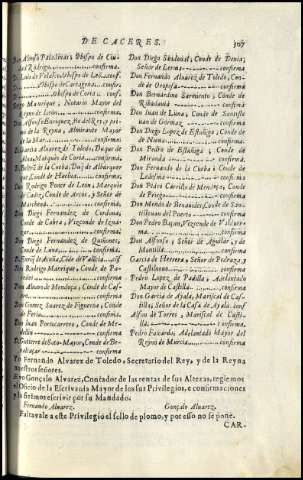 DE CACERES. 307
Don Alonso Palentinas Obispo de Ciu-
dad Rodrigo. confirma.
Don Luis de Velasco Obispo de Leon. conf.
Obispo de Cartagena. confir.
Obispo de Coria. conf.
Diego Manrique, Notario Mayor del
Reyno de Leon. confirma.
Don Alfonso Enriquez, tio del Rey, y pri-
mo de la Reyna, Almirante Mayor
de la Mar. confirma.
Don Garcia Alvarez de Toledo, Duque de
Alva, Marqués de Coria. confirma.
Don Beltran de la Cueba, Duq. de Alburquer
que, Conde de Huelma. confirma.
Don Rodrigo Ponce de Leon, Marqués
de Cadiz, Conde de Arcos, y Señor de
Marchena. confirma.
Don Diego Fernandez de Cordova,
Conde de Cabra, Vizconde de Iznar
confirma.
Don Diego Fernandez de Quiñones,
Conde de Luna. confirma.
Don Rodrigo Manrique, Conde de Pa-
redes. confirma.
Don Alvaro de Mendoça, Conde de Cas-
confirma.
Don Gomez Suarez de Figueroa, Conde
de Feria. confirma.
Don Juan Portocarrero, Conde de Me-
dellin. confirma.
Don Gutierre de Soto-Mayor, Conde de Be-
confirma.
Don Diego Sandoval, Conde de Denia;
Señor de Lerma. confirma
Don Fernando Alvarez de Toledo, Con-
de de Oropesa. confirma
Don Bernardino Sarmiento, Conde de
Ribadavia. confirma
Don Juan de Luna, Conde de Santeste-
van de Gormaz. confirma
Don Diego Lopez de Estuñiga, Conde de
confirma
Don Pedro de Estuñiga, Conde de
Miranda. confirma
Don Fernando de la Cueba, Conde de
Ledesma. confirma
Don Pedro Carrillo de Mendoça, Conde
de Priego. confirma
Don Mendo de Benavides, Conde de San-
tistevan del Puerto. confirma
Don Pedro Bazan, Vizconde de Valduer-
na. confirma
Don Alfonso, Señor de Aguilar, y de
Montilla. confirma
Garcia de Herrera, Señor de Pedraza, y
confirma
Pedro Lopez de Padilla, Adelantado
Mayor de Castilla. confirma
Don Garcia de Ayala, Mariscal de Cas-
tilla, Señor de la Casa de Ayala. conf
Alfon de Torres, Mariscal de Casti-
confirma
Pedro Faxardo, Adelantado Mayor del
Reyno de Murcia. confirma
Yo Fernando Alvarez de Toledo, Secretario del Rey, y de la Reyna
nuestros señores.
Yo Gonçalo Alvarez, Contador de las rentas de sus Altezas, regiemos
el Oficio de la Escrivania Mayor de los sus Privilegios, e confirmaciones
y la fezimos escrivir por su Mandado.
Fernando Alvarez. Gonçalo Alvarez.
Faltavale a este Privilegio el sello de plomo, y por esso no se pone.
CAR-